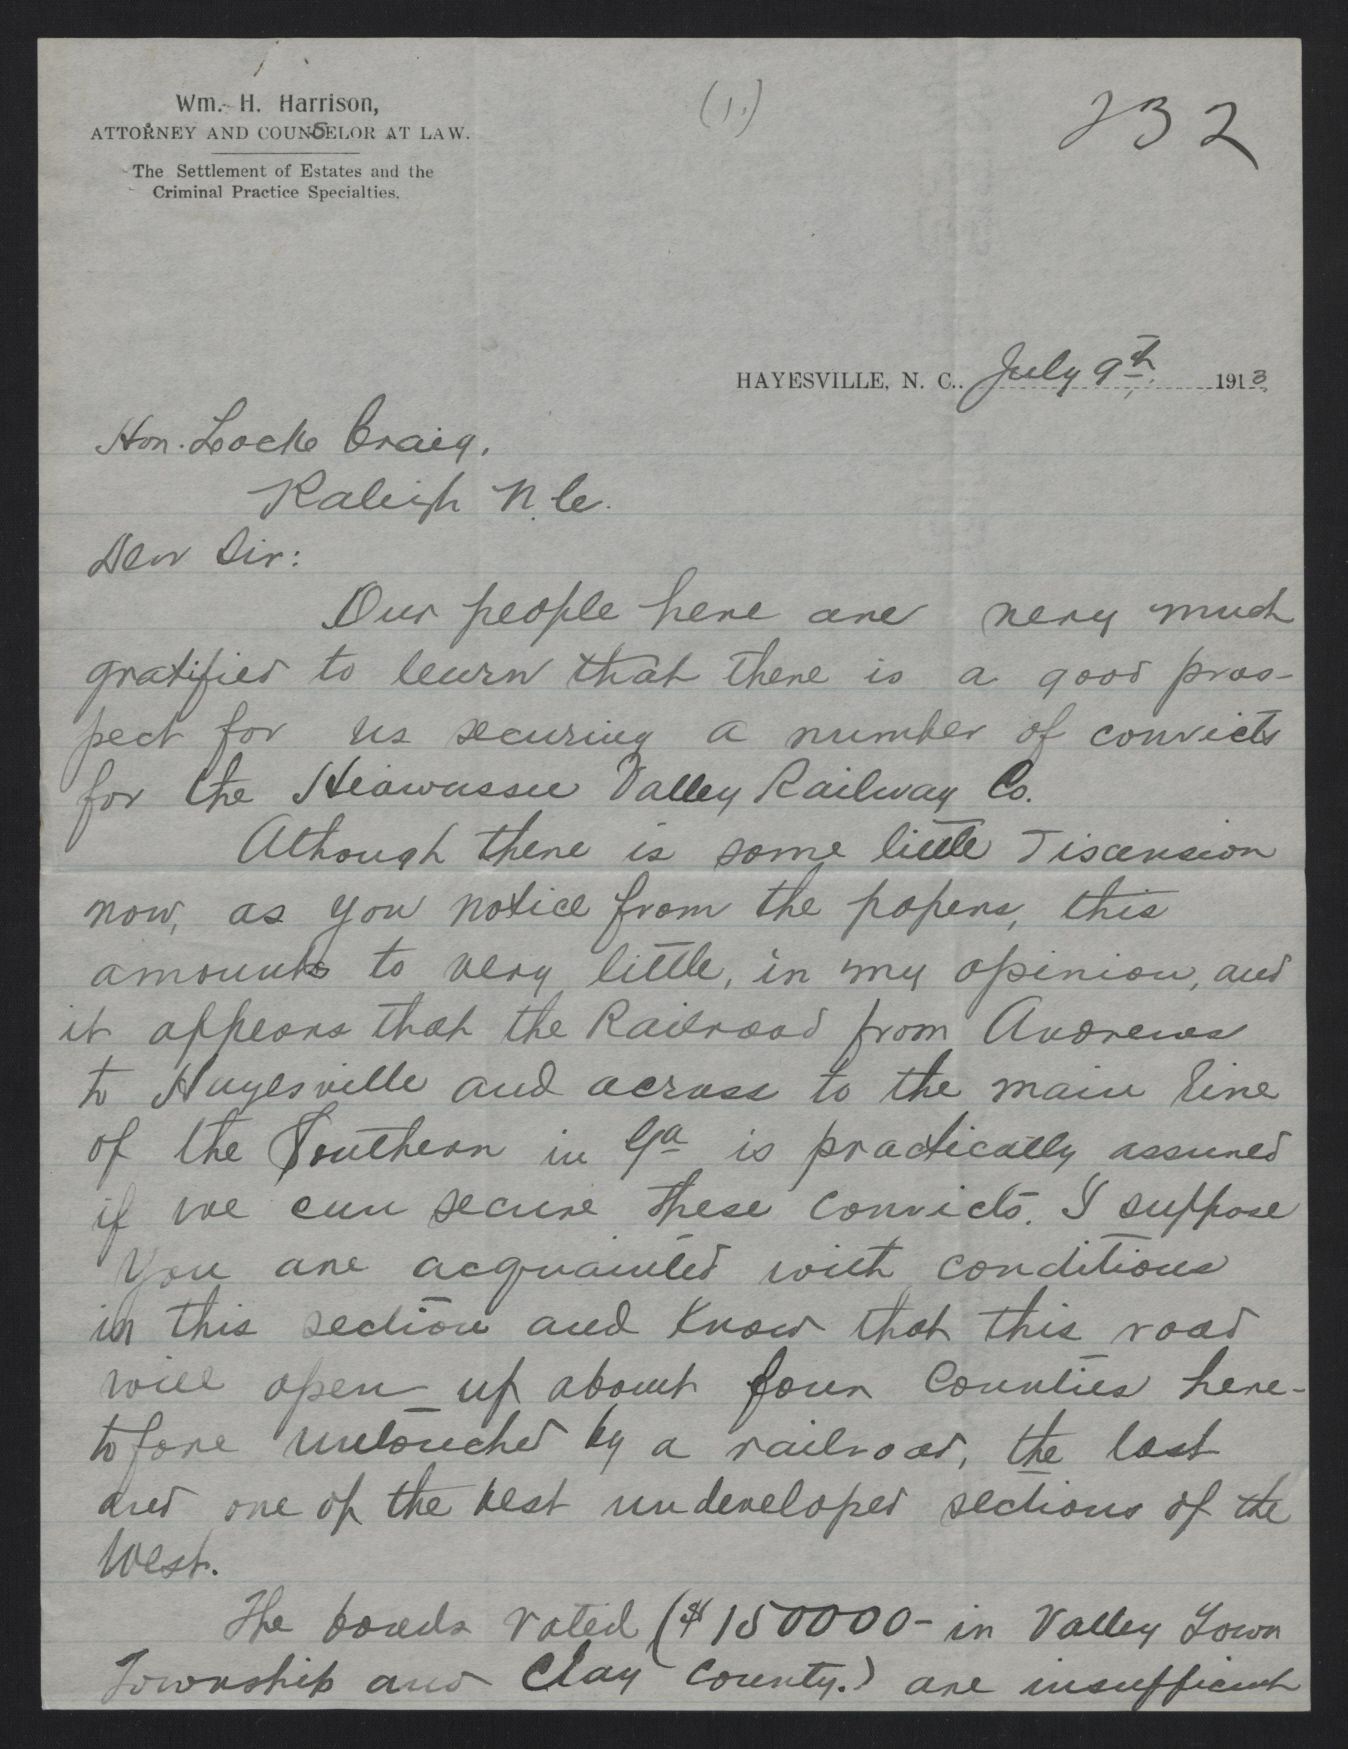 Wm. H. Harrison,
ATTORNEY AND COUNSELOR AT LAW.
The Settlement of Estates and the
Criminal Practice Specialties.
(1.)
232
HAYESVILLE, N. C., July 9th. 1913.
Hon. Locke Craig,
Raleigh N.C.
Dear Sir:
Our people here are very much
gratified to learn that there is a good pros-
pect for us securing a number of convicts
for the Hiawassee Valley Railway Co.
Although there is some little Discension
now, as you notice from the papers, this
amounts to very little, in my opinion, and
it appears that the Railroad from Andrews
to Hayesville and across to the main line
of the Southern in Ga is practically assured
if we can secure these convicts. I suppose
you are acquainted with conditions
in this section and know that this road
will open up about four Counties here-
tofore untouched by a railroad, the last
and one of the best undeveloped sections of the
West.
The bonds voted ($150000- in Valley Town
Township and Clay County.) are insufficient